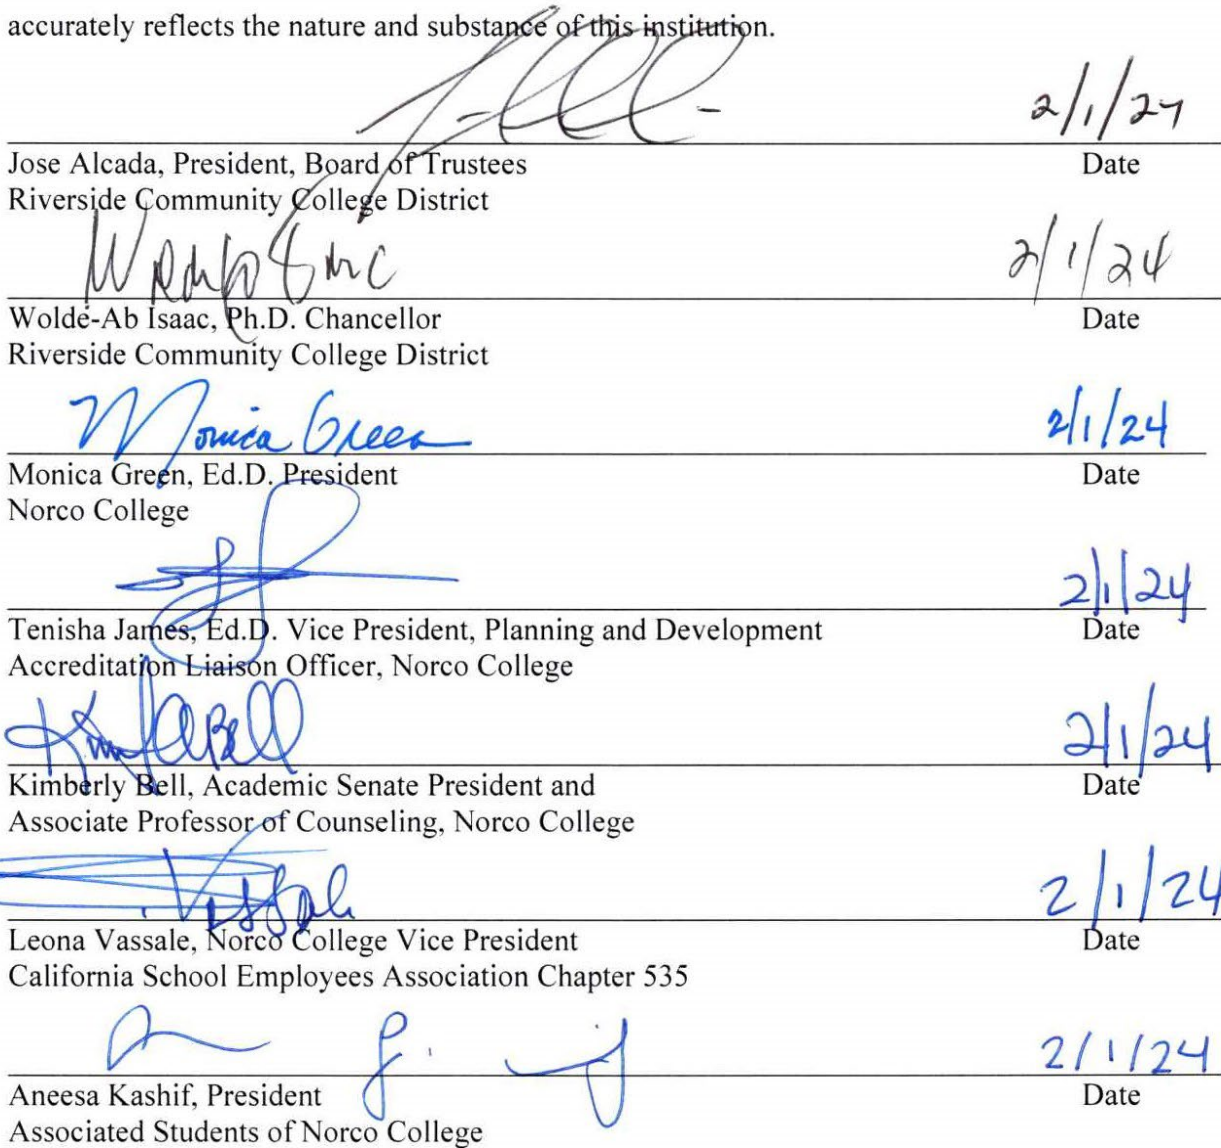 accurately reflects the nature and substance of this institution.
2/1/24
Jose Alcada, President, Board of Trustees Date
Riverside Community College District
2/1/24
Wolde-Ab Isaac, Ph.D. Chancellor Date
Riverside Community College District
Monica Green 2/1/24
Monica Green, Ed.D. President Date
Norco College
2/1/24
Tenisha James, Ed.D. Vice President, Planning and Development Date
Accreditation Liaison Officer, Norco College
2/1/24
Kimberly Bell, Academic Senate President and Date
Associate Professor of Counseling, Norco College
2/1/24
Leona Vassale, Norco College Vice President Date
California School Employees Association Chapter 535
2/1/24
Aneesa Kashif, President Date
Associated Students of Norco College